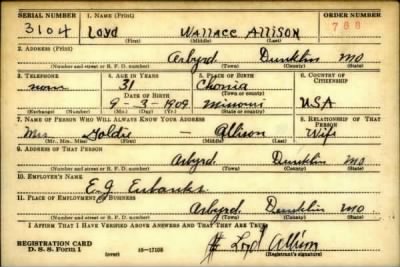 SERIAL NUMBER 1. NAME (Print) ORDER NUMBER
3104 LOYD WALLACE ALLISON 788
(First) (Middle) (Last)
2. ADDRESS (Print)
Arbyrd Dunklin MO
(Number and street or R. F. D. number) (Town) (County) (State)
3. TELEPHONE 4. AGE IN YEARS 5. PLACE OF BIRTH 6. COUNTRY OF CITIZENSHIP
none 31
(Town or county)
DATE OF BIRTH
9-3-1909 Missouri USA
(Exchange) (Number) (Mo.) (Day) (Yr.) (State or country)
7. NAME OF PERSON WHO WILL ALWAYS KNOW YOUR ADDRESS 8. RELATIONSHIP OF THAT PERSON
Mrs Goldie — Allison Wife
(Mr., Mrs., Miss) (First) (Middle) (Last)
9. ADDRESS OF THAT PERSON
Arbyrd Dunklin Mo
(Number and street or R. F. D. number) (Town) (County) (State)
10. EMPLOYER'S NAME
E. J. Eubanks
11. PLACE OF EMPLOYMENT OR BUSINESS
Arbyrd Dunklin MO
(Number and street or R. F. D. number) (Town) (County) (State)
I AFFIRM THAT I HAVE VERIFIED ABOVE ANSWERS AND THAT THEY ARE TRUE.
REGISTRATION CARD
D. S. S. Form 1 (over) 16-17105 Loyd Allison
(Registrant's signature)